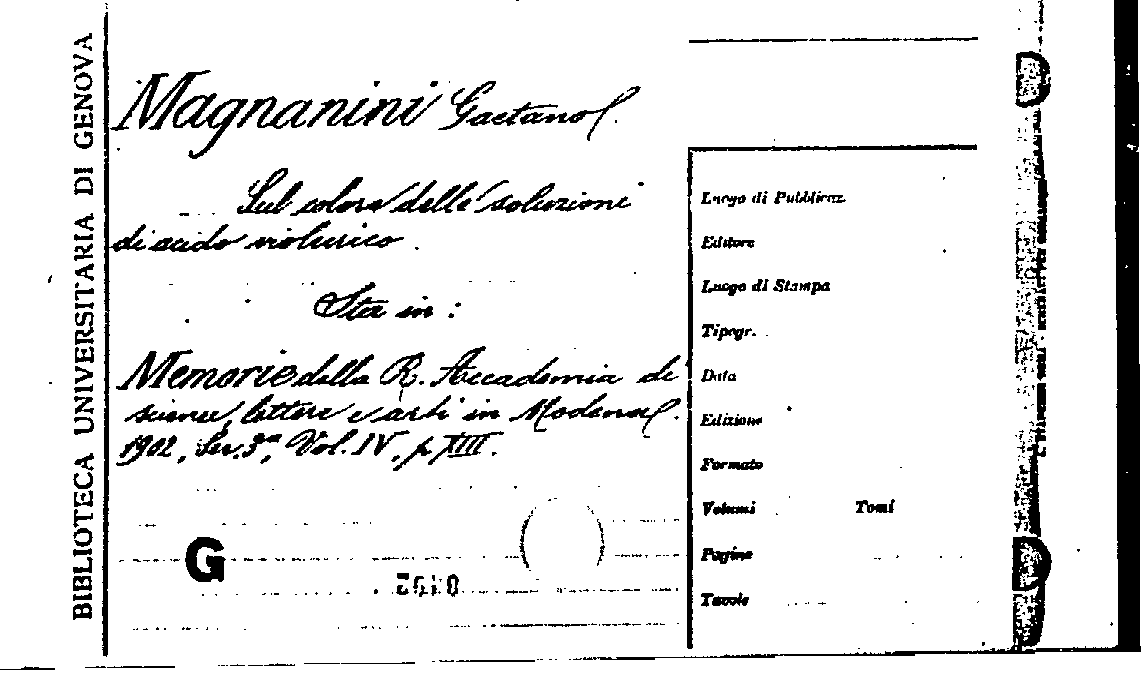 BIBLIOTECA UNIVERSITARIA DI GENOVA
Magnanini Gaetano
Sul colore delle soluzioni
di acido violurico.
Sta in:
Memorie della R. Accademia di
scienze, lettere e arti in Modena.
1902, Ser. 3ª, Vol. IV, p. XIII.
G
Luogo di Pubblicaz.
Editore
Luogo di Stampa
Tipogr.
Data
Edizione
Formato
Volumi Tomi
Pagine
Tavole